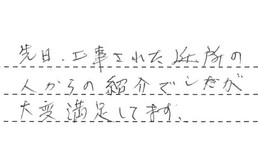 先日、工事された近所の
人からの紹介でしたが
大変満足してます。